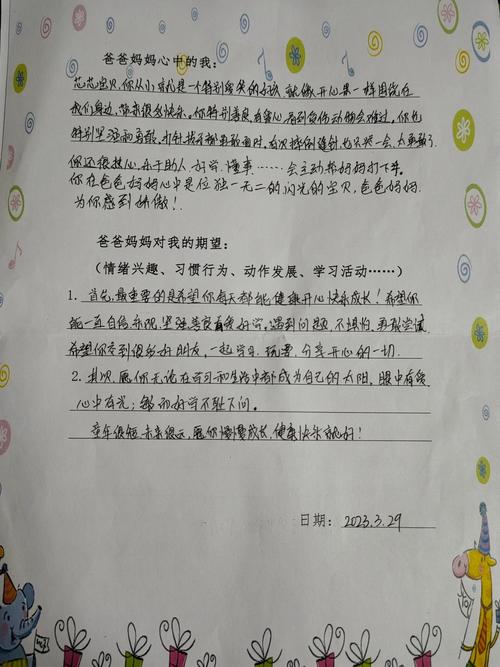 爸爸妈妈心中的我：
芯芯宝贝，你从小就是一个特别爱笑的女孩，就像开心果一样围绕在
我们身边，带来很多快乐。你特别善良，有爱心，看到受伤动物会难过，你也
特别坚强和勇敢，打针拔牙都勇敢面对，有次摔倒缝针，也只哭一会，太勇敢了
你还很热心，乐于助人，好学，懂事……会主动帮妈妈打下手。
你在爸爸妈妈心中是位独一无二的闪光的宝贝，爸爸妈妈
为你感到骄傲！
爸爸妈妈对我的期望：
（情绪兴趣、习惯行为、动作发展、学习活动……）
1. 首先，最重要的是希望你每天都能健康开心快乐成长！希望你
能一直自信乐观，坚强善良有爱好学，遇到问题，不惧怕，勇敢尝试
希望你交到很多好朋友，一起学习，玩耍，分享开心的一切.
2. 其次，愿你无论在学习和生活中都成为自己的太阳，眼中有爱
心中有光；勤动好学不耻下问。
童年很短，未来很远，愿你慢慢成长，健康快乐就好！
日期：2023.3.29